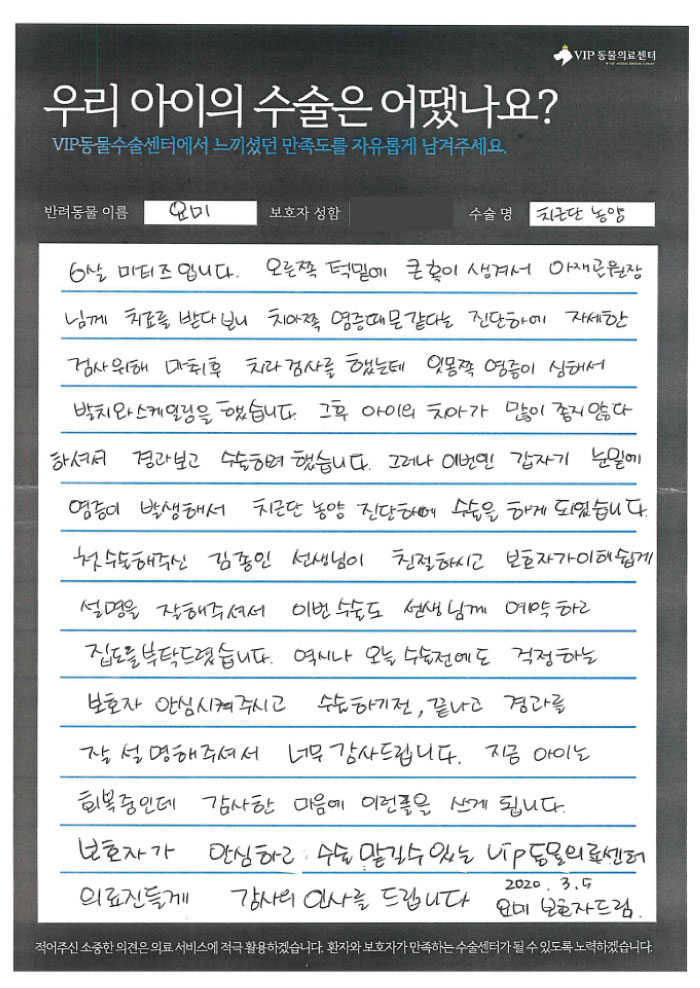 VIP 동물의료센터
우리 아이의 수술은 어땠나요?
VIP동물수술센터에서 느끼셨던 만족도를 자유롭게 남겨주세요.
반려동물 이름 요미 보호자 성함 수술 명 치근단 농양
6살 마티즈입니다. 오른쪽 턱밑에 큰혹이 생겨서 이재준원장
님께 치료를 받다보니 치아쪽 염증때문같다는 진단하에 자세한
검사위해 마취후 치과검사를 했는데 잇몸쪽 염증이 심해서
발치와스케일링을 했습니다. 그후 아이의 치아가 많이 좋지않다
하셔서 경과보고 수술하려 했습니다. 그러나 이번엔 갑자기 눈밑에
염증이 발생해서 치근단 농양 진단하에 수술을 하게 되었습니다.
첫수술해주신 김종인 선생님이 친절하시고 보호자가이해쉽게
설명을 잘해주셔서 이번수술도 선생님께 예약하고
집도을부탁드렸습니다. 역시나 오늘 수술전에도 걱정하는
보호자 안심시켜주시고 수술하기전, 끝나고 경과를
잘 설명해주셔서 너무 감사드립니다. 지금 아이는
회복중인데 감사한 마음에 이런글을 쓰게 됩니다.
보호자가 안심하고 수술 맡길수 있는 Vip동물의료센터
의료진들게 감사의 인사를 드립니다 2020. 3. 5
요미 보호자드림.
적어주신 소중한 의견은 의료 서비스에 적극 활용하겠습니다. 환자와 보호자가 만족하는 수술센터가 될 수 있도록 노력하겠습니다.